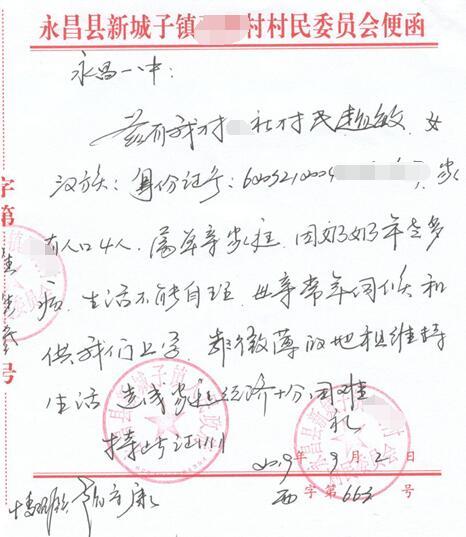 永昌县新城子镇 村村民委员会便函
永昌一中:
兹有我村 社村民赵敏,女
汉族:身份证号: 家
有人口4人,属单亲家庭,因奶奶年老多
病,生活不能自理,母亲常年伺候和
供我们上学,靠微薄的地租维持
生活,造成家庭经济十分困难
持此证明
礼
2019年9月2日
字第663号
字第 号